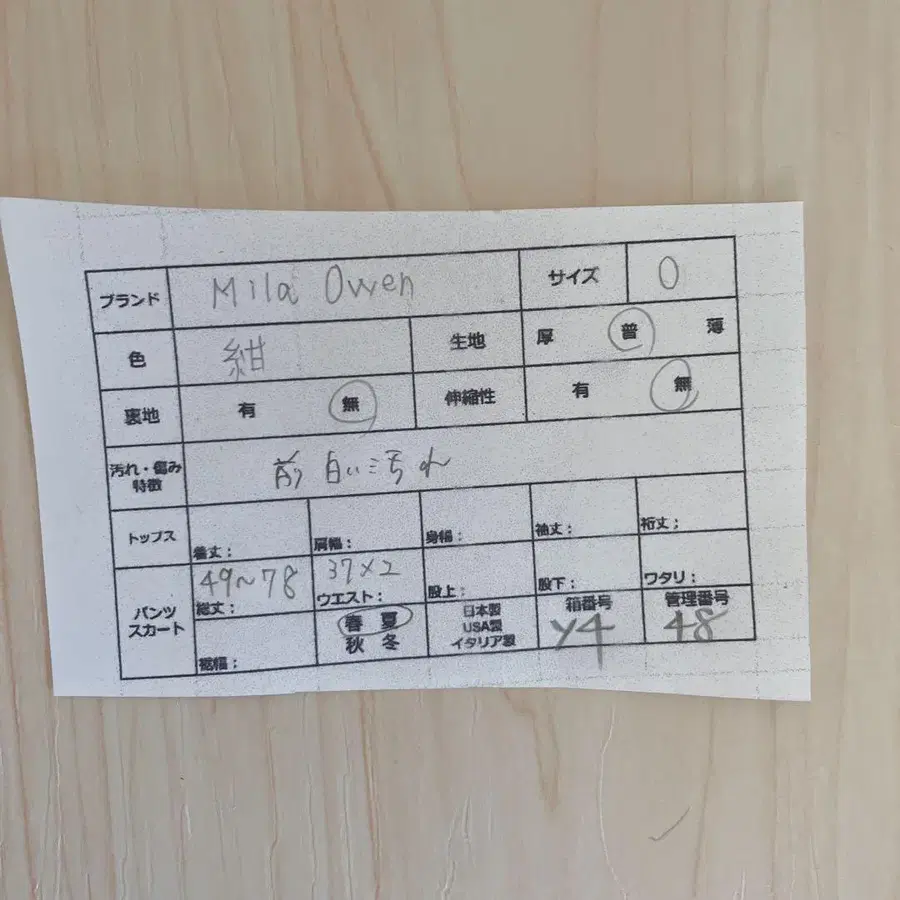 ブランド Mila Owen サイズ 0
色 紺 生地 厚 普 薄
裏地 有 無 伸縮性 有 無
汚れ・傷み
特徴 前 白い汚れ
トップス 着丈: 肩幅: 身幅: 袖丈: 裄丈;
パンツ
スカート
49~78 37×2
総丈: ウエスト: 股上: 股下: ワタリ:
裾幅:
春 夏
秋 冬
日本製
USA製
イタリア製
箱番号 管理番号
Y4 48